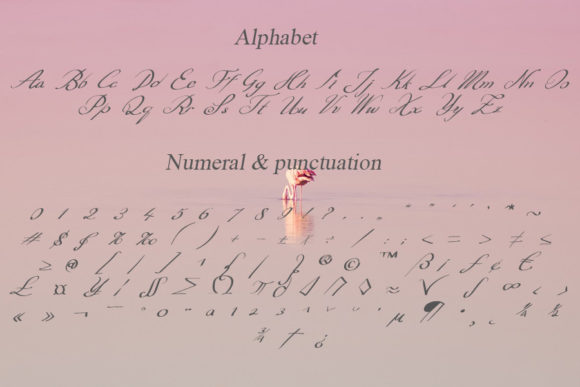 Alphabet
Aa Bb Cc Dd Ee Ff Gg Hh Ii Jj Kk Ll Mm Nn Oo
Pp Qq Rr Ss Tt Uu Vv Ww Xx Yy Zz
Numeral & punctuation
0 1 2 3 4 5 6 7 8 9 ! ? * ~
# $ % ‰ ( ) + - ± × ÷ / : ; < = > ≠ ≤
≥ @ [ / ] { | } ® © ™ β f ¢ €
£ ¤ ¥ ∫ Σ Ω π ∂ Δ Π ◊ ≈ √ ∫ ∞ ‹ ›
« » ¬ ¯ º ª 1 2 3 µ ¶ ¼ ½
¾ † ¿